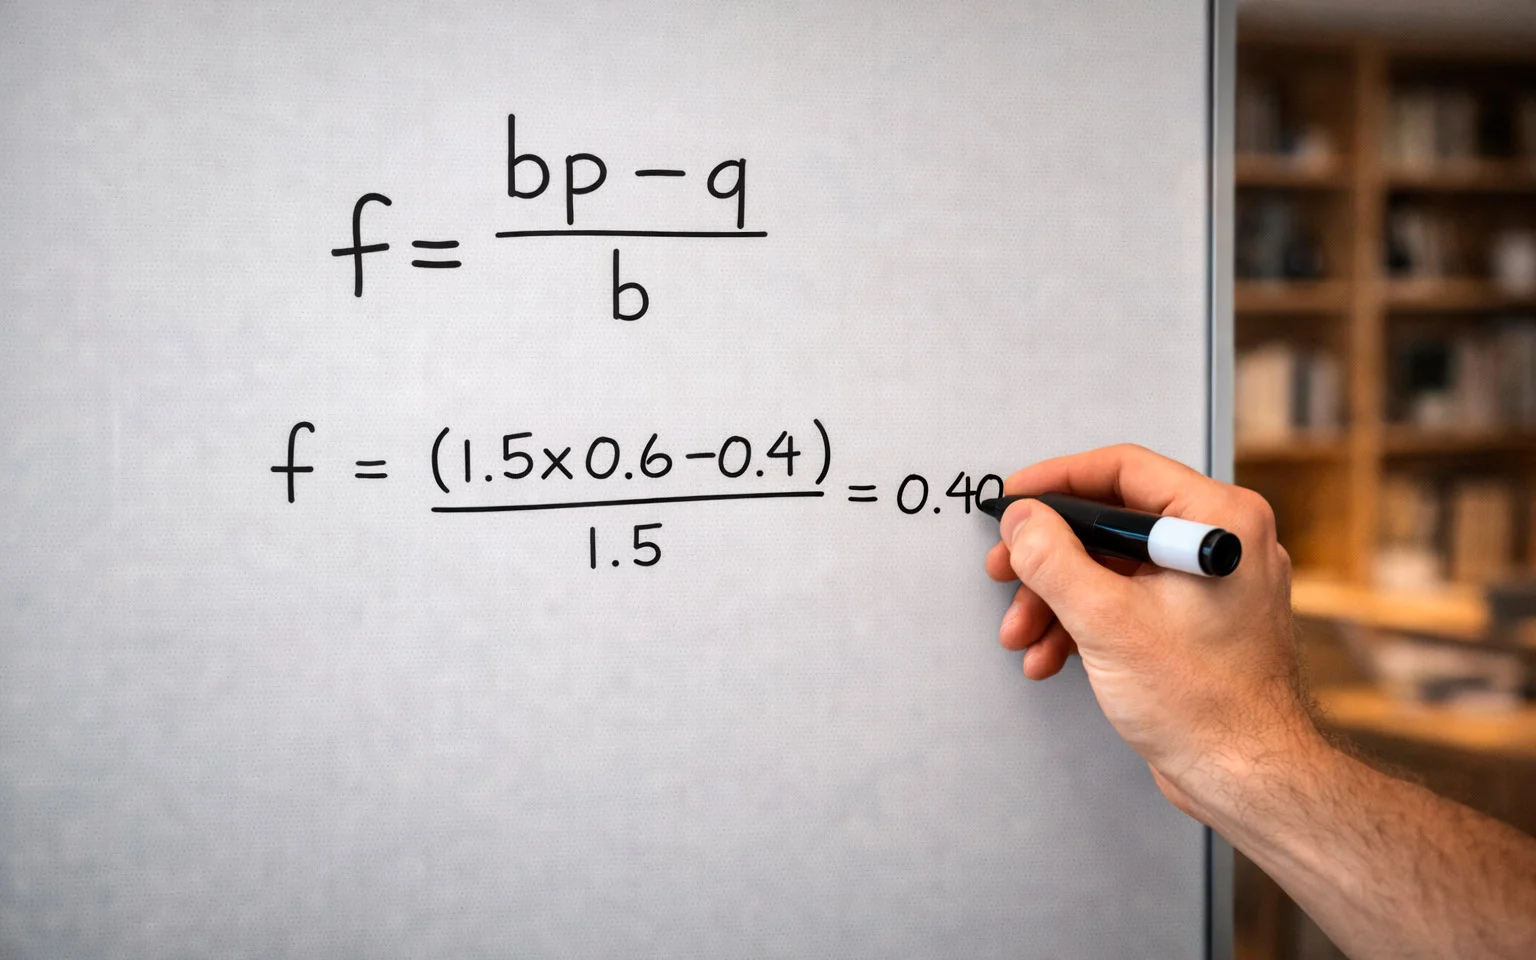 f = bp - q / b
f = (1.5x0.6-0.4) / 1.5 = 0.40